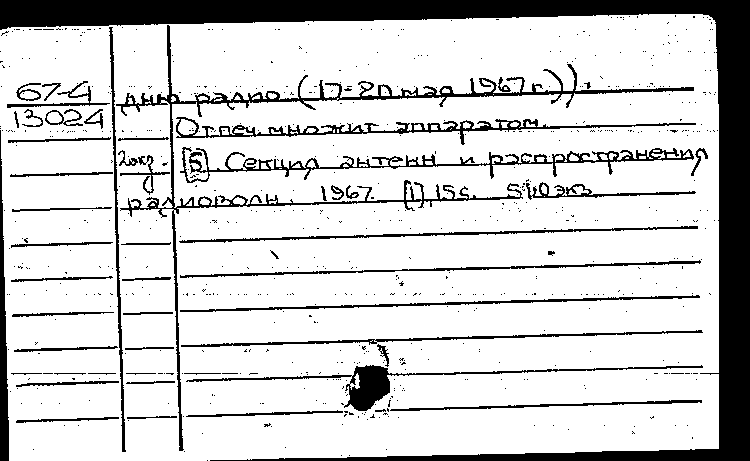 67-4 дню радио (17-20 мая 1967 г.)).
13024 Отпеч. множит аппаратом.
2окз. [5] Секция антенн и распространения
радиоволн. 1967. [1], 15 с. 510 экз.